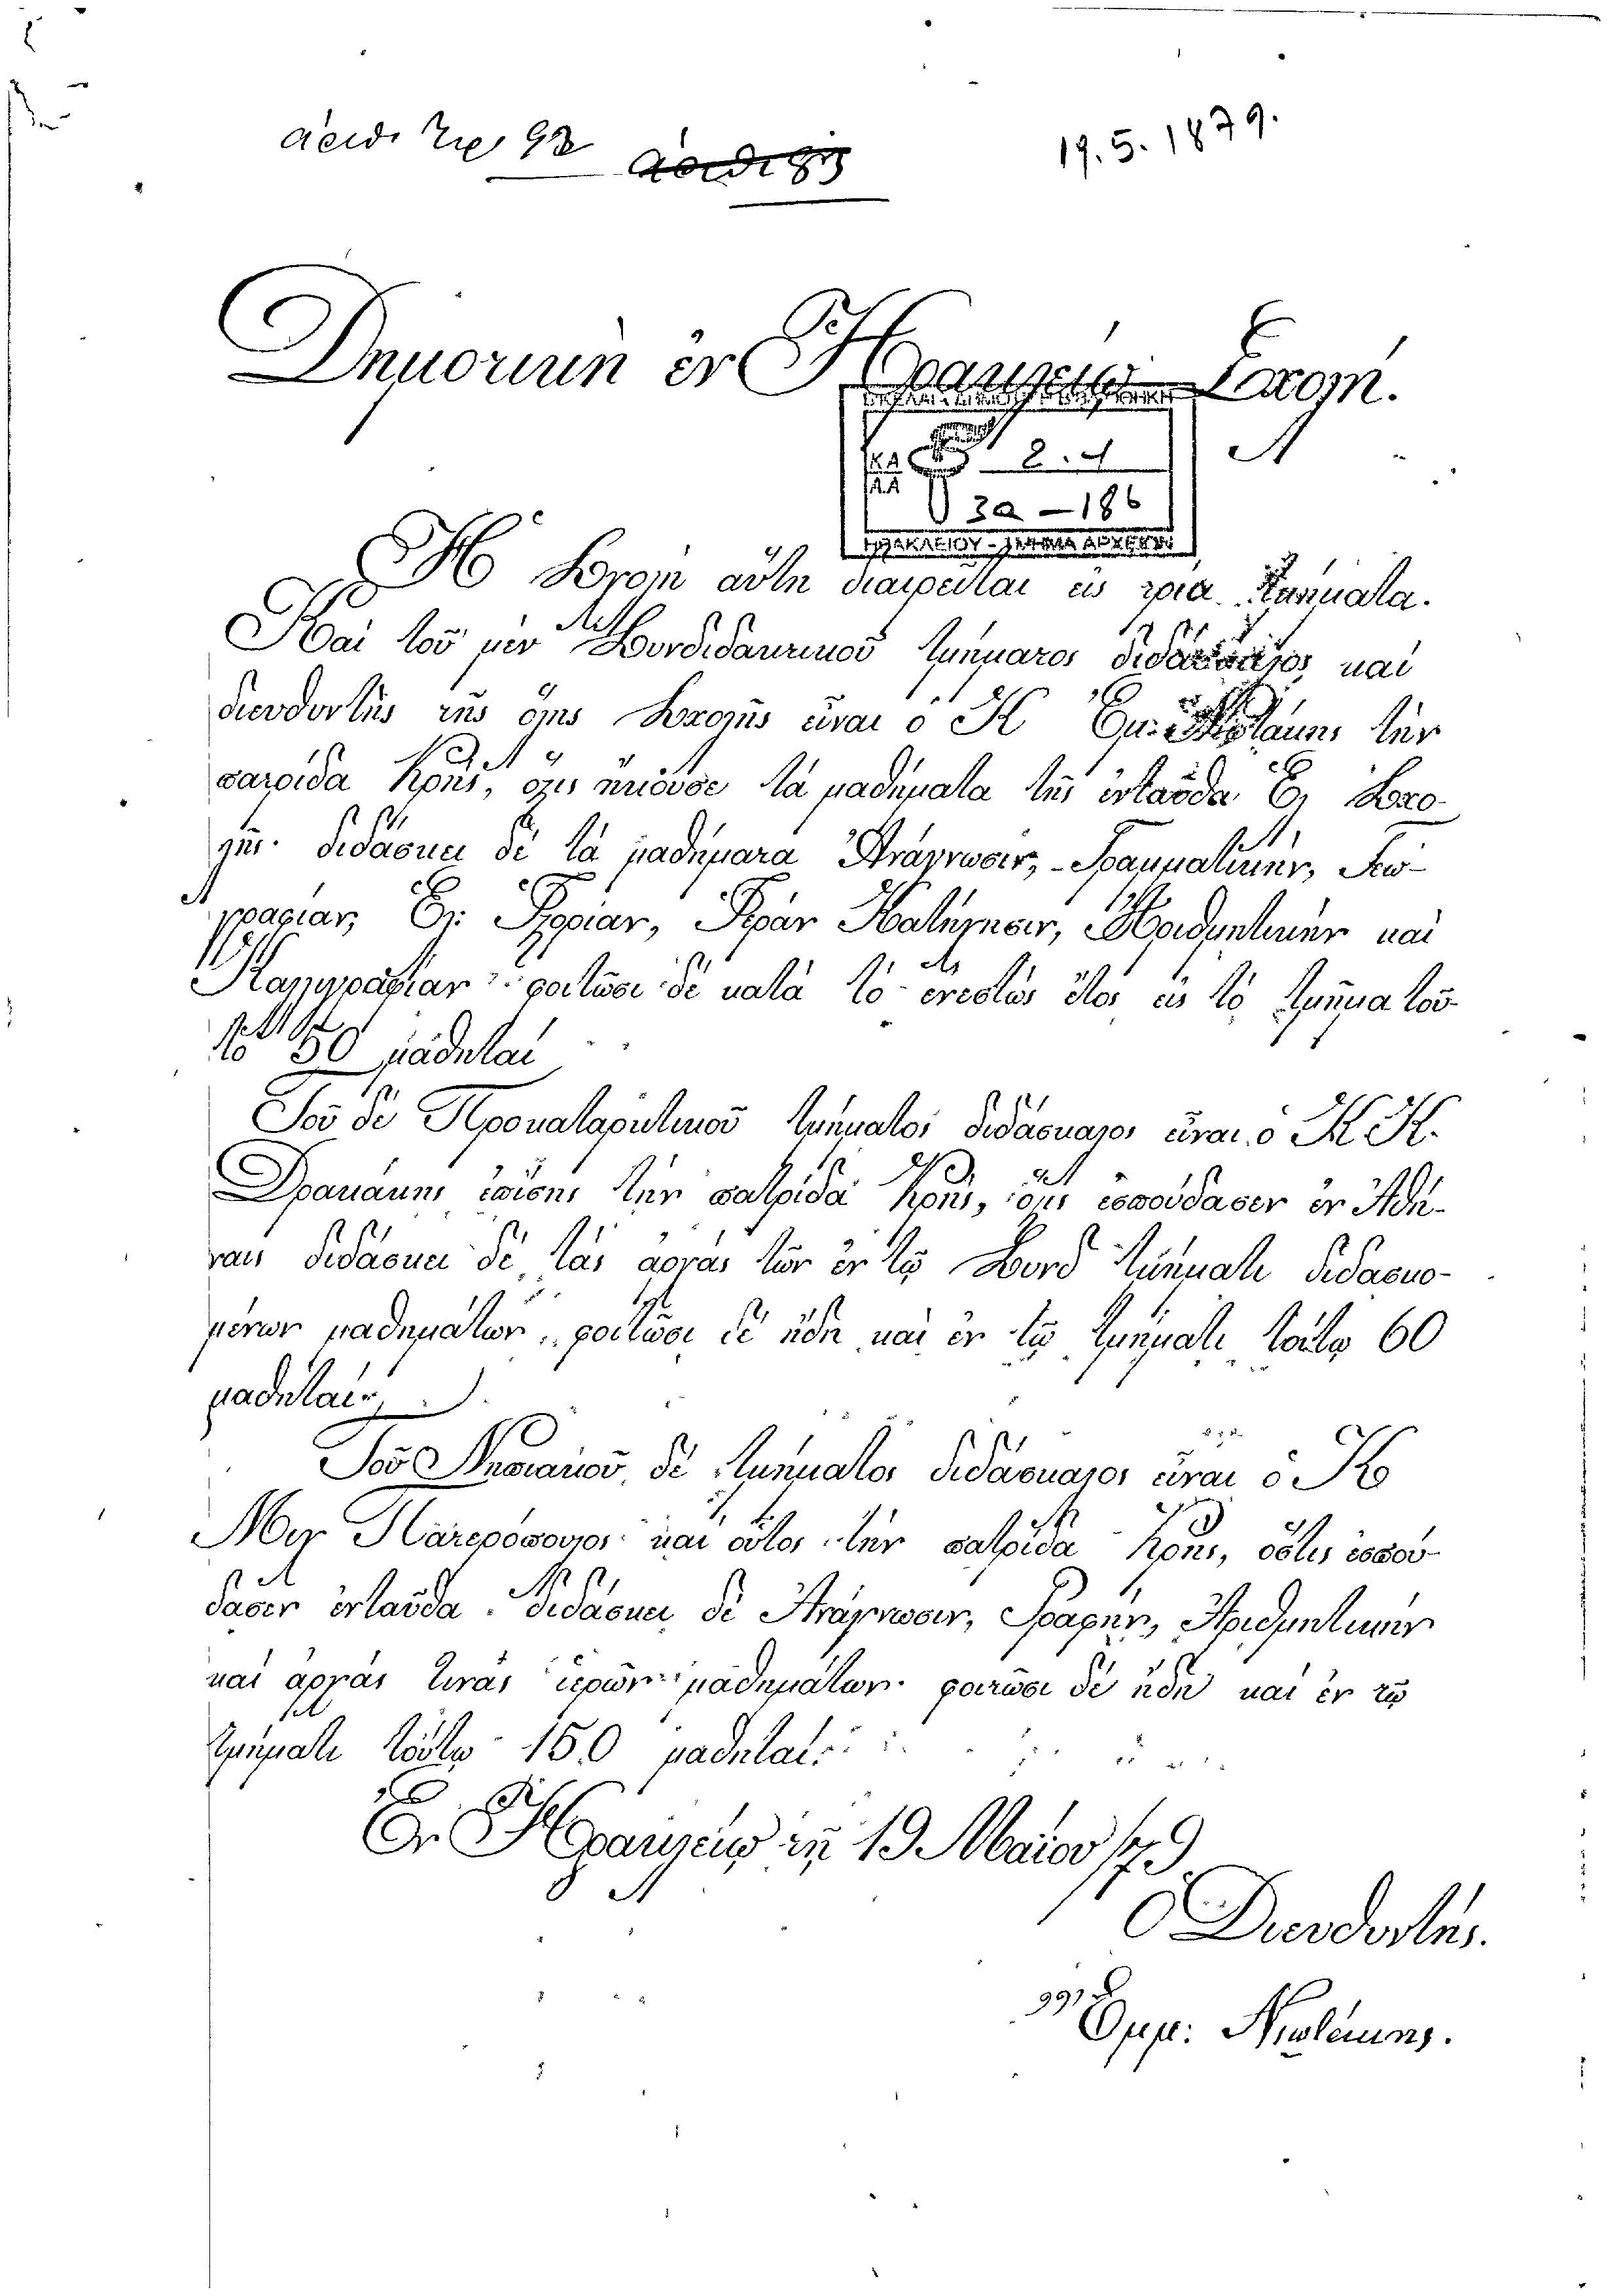 ἀριθ. 92
19.5.1879.
Δημοτικὴ ἐν Ἡρακλείῳ Σχολή.
2.4
3α-186
ΗΡΑΚΛΕΙΟΥ - ΤΜΗΜΑ ΑΡΧΕΙΩΝ
Ἡ Σχολὴ αὕτη διαιρεῖται εἰς τρία τμήματα.
Καὶ τοῦ μὲν Συνδιδακτικοῦ τμήματος διδάσκαλος καὶ
διευθυντὴς τῆς ὅλης Σχολῆς εἶναι ὁ Κ Ἐμ. Νικολάκης τὴν
πατρίδα Κρής, ὅςτις ἤκουσε τὰ μαθήματα τῆς ἐνταῦθα Ἑλ Σχο-
λῆς. διδάσκει δὲ τὰ μαθήματα Ἀνάγνωσιν, Γραμματικήν, Γεω-
γραφίαν, Ἑλ. Ἱστορίαν, Ἱερὰν Κατήχησιν, Ἀριθμητικὴν καὶ
Καλλιγραφίαν. φοιτῶσι δὲ κατὰ τὸ ἐνεστὼς ἔτος εἰς τὸ τμῆμα τοῦ-
το 50 μαθηταί
Τοῦ δὲ Προκαταρκτικοῦ τμήματος διδάσκαλος εἶναι ὁ Κ Κ.
Δρακάκης ἐπίσης τὴν πατρίδα Κρής, ὅςτις ἐσπούδασεν ἐν Ἀθή-
ναις διδάσκει δὲ τὰς ἀρχὰς τῶν ἐν τῷ Συνδ τμήματι διδασκο-
μένων μαθημάτων. φοιτῶσι δὲ ἤδη καὶ ἐν τῷ τμήματι τούτῳ 60
μαθηταί.
Τοῦ Νηπιακοῦ δὲ τμήματος διδάσκαλος εἶναι ὁ Κς
Μιχ καὶ οὗτος τὴν πατρίδα Κρής, ὅστις ἐσπού-
δασεν ἐνταῦθα. διδάσκει δὲ Ἀνάγνωσιν, Γραφήν, Ἀριθμητικὴν
καὶ ἀρχάς τινας ἱερῶν μαθημάτων. φοιτῶσι δὲ ἤδη καὶ ἐν τῷ
τμήματι τούτῳ 150 μαθηταί.
Ἐν Ἡρακλείῳ τῇ 19 Μαΐου /79
Ὁ Διευθυντής.
Ἐμμ: Νικολάκης.